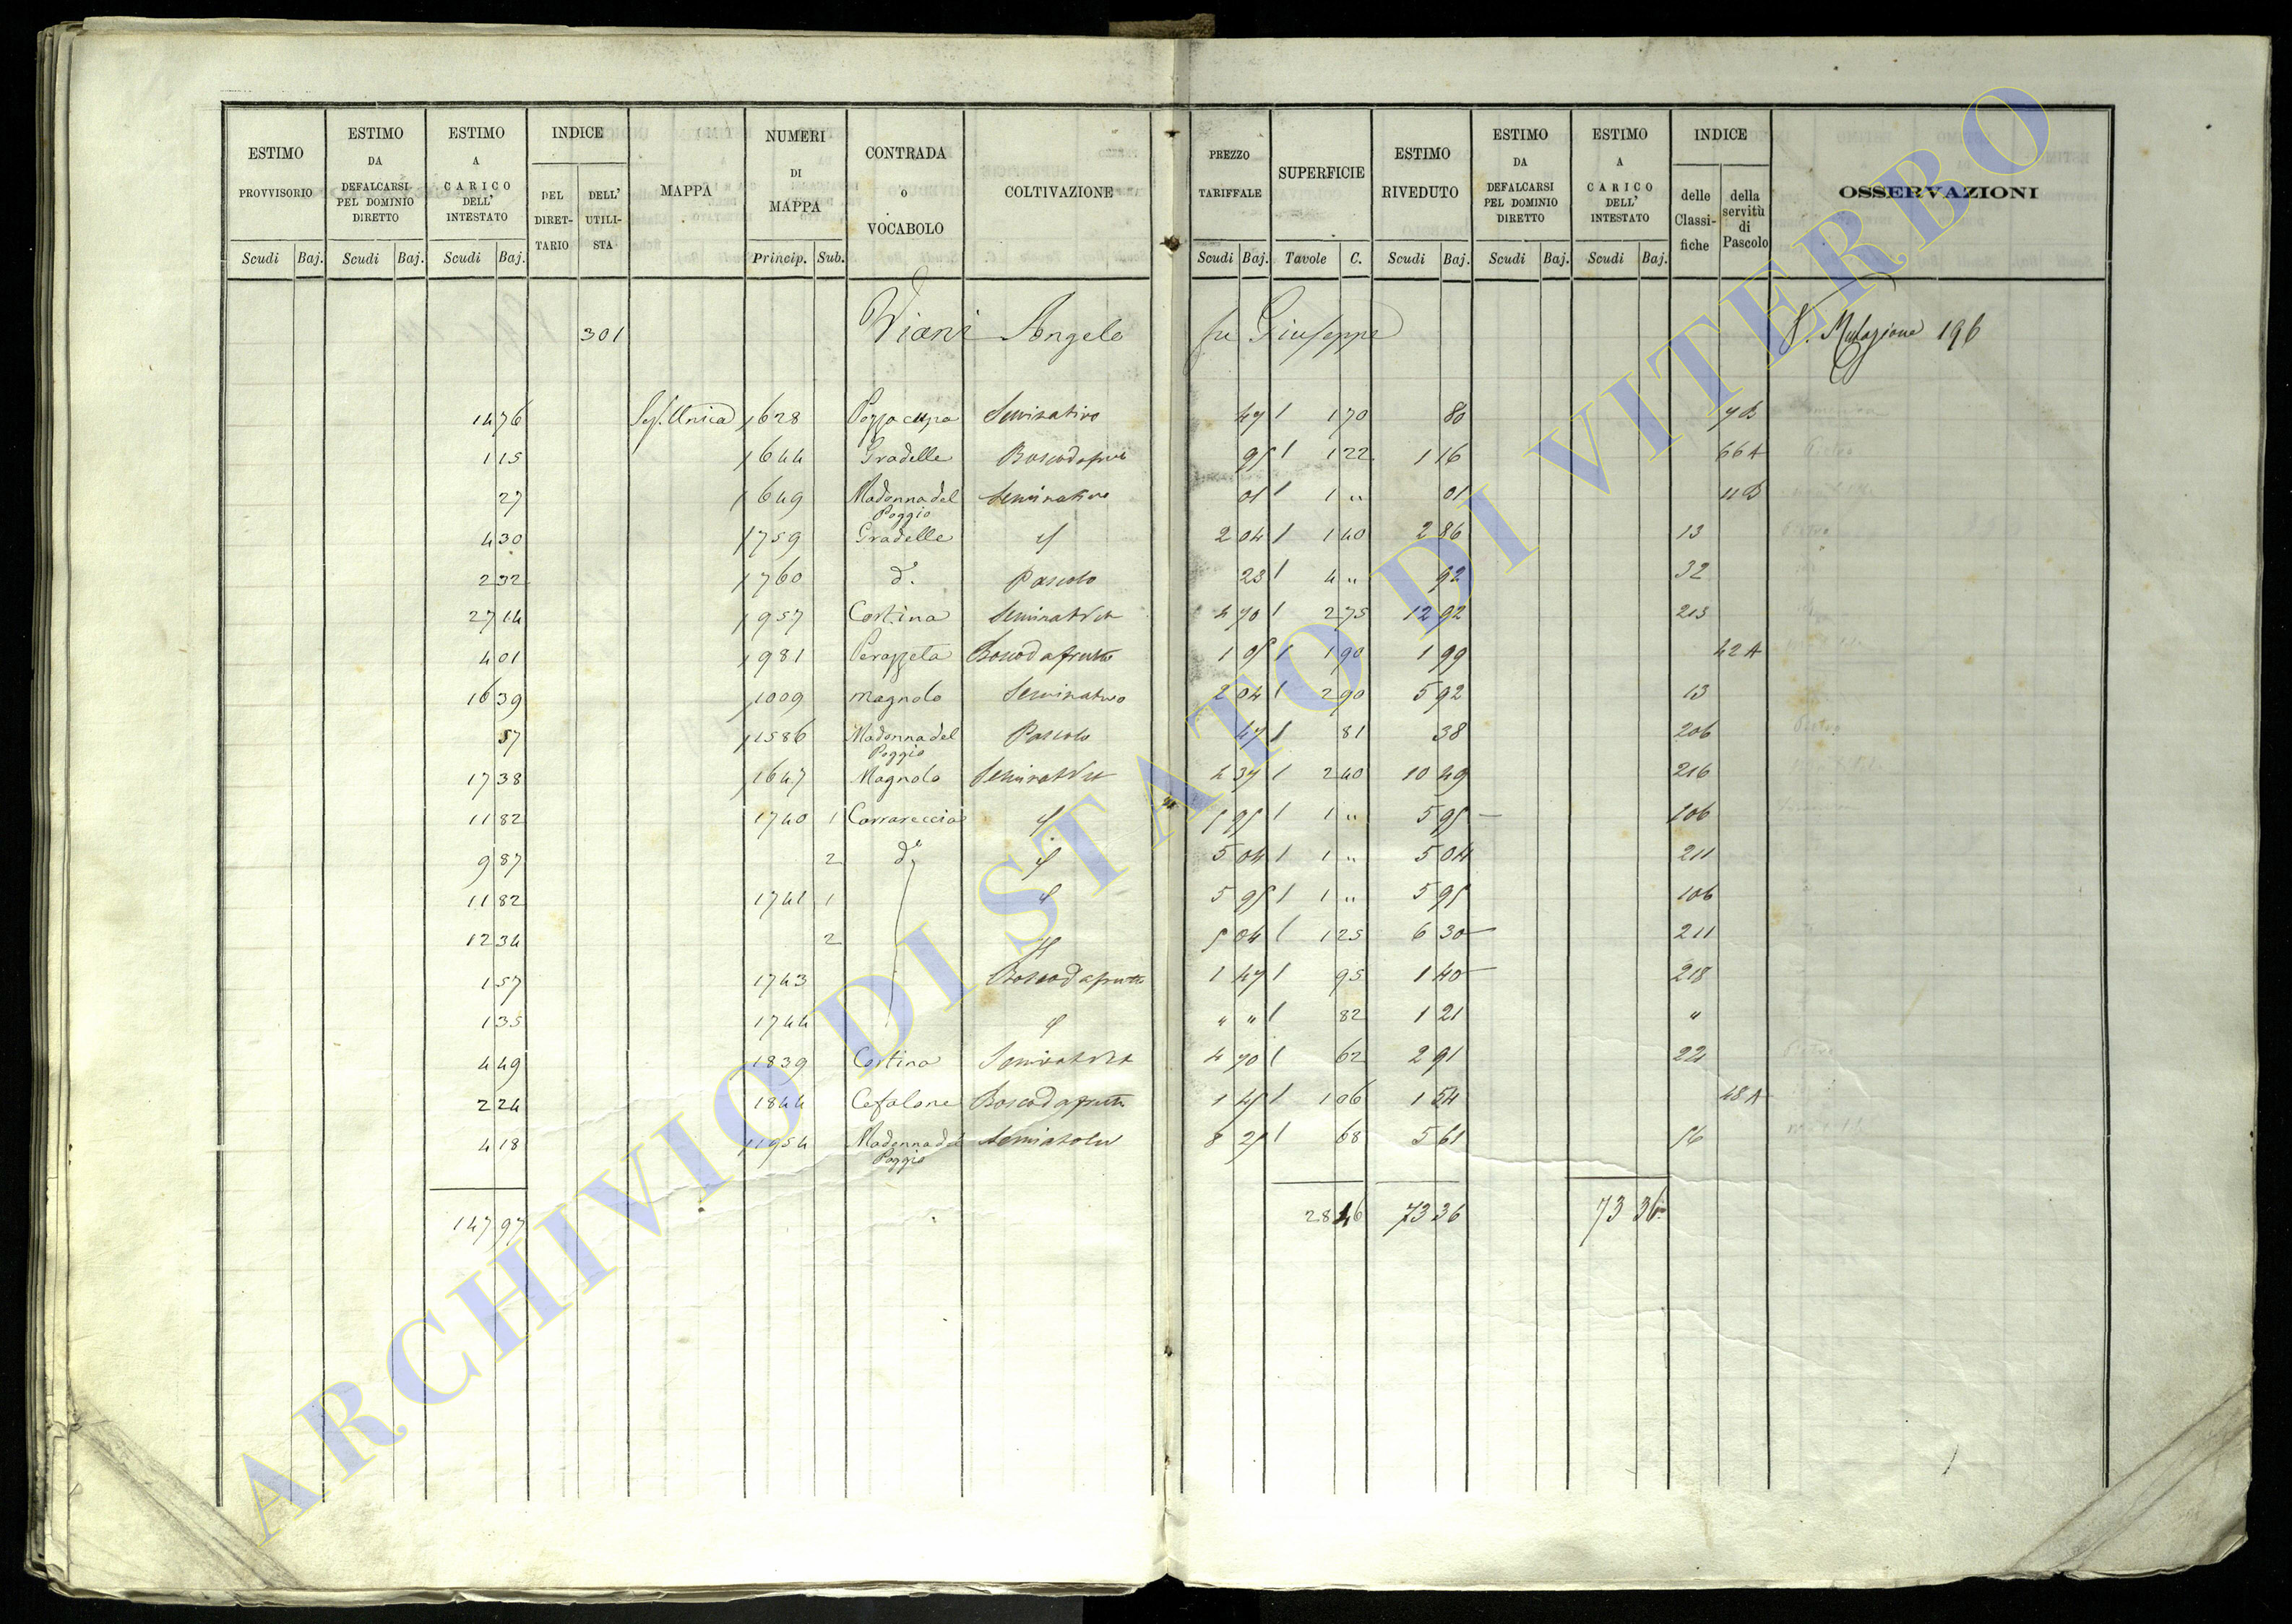 ESTIMO PROVVISORIO Scudi Baj. ESTIMO DA DEFALCARSI PEL DOMINIO DIRETTO Scudi Baj. ESTIMO A CARICO DELL' INTESTATO Scudi Baj. INDICE DEL DIRETTARIO DELL' UTILISTA MAPPA NUMERI DI MAPPA Princip. Sub. CONTRADA o VOCABOLO COLTIVAZIONE PREZZO TARIFFALE Scudi Baj. SUPERFICIE Tavole C. ESTIMO RIVEDUTO Scudi Baj. ESTIMO DA DEFALCARSI PEL DOMINIO DIRETTO Scudi Baj. ESTIMO A CARICO DELL' INTESTATO Scudi Baj. INDICE delle Classifiche della servitù di Pascolo OSSERVAZIONI
301 Viani Angelo fu Giuseppe V. Mutazione 196
14 76 Sez. Unica 1628 Pozzo cupo Seminativo 47 1 70 80 7B
1 15 1644 Gradelle Bosco da frutto 95 1 22 1 16 66A
27 1649 Madonna del Poggio Seminativo 01 1 " 01 11B
4 30 1759 Gradelle 2 04 1 40 2 86 13
2 32 1760 d°. Pascolo 23 4 " 92 32
27 14 957 Cortina 4 70 2 75 12 92 213
4 01 981 Bosco da frutto 1 05 1 90 1 99 42A
16 39 1009 Magnolo Seminativo 2 04 2 90 5 92 13
57 1586 Madonna del Poggio Pascolo 47 81 38 206
17 38 1647 Magnolo 4 37 2 40 10 49 216
11 82 1740 1 Carrareccia 5 95 1 " 5 95 106
9 87 2 d° 5 04 1 " 5 04 211
11 82 1741 1 5 95 1 " 5 95 106
12 34 2 5 04 1 25 6 30 211
1 57 1743 Bosco da frutto 1 47 95 1 40 218
1 35 1744 " " 82 1 21 "
4 49 1839 Cortina 4 70 62 2 91 22
2 24 1844 Cefalone Bosco da frutto 1 45 1 06 1 54 48A
4 18 1954 Madonna del Poggio 8 25 68 5 61 56
147 97 28 46 73 36 73 36
ARCHIVIO DI STATO DI VITERBO